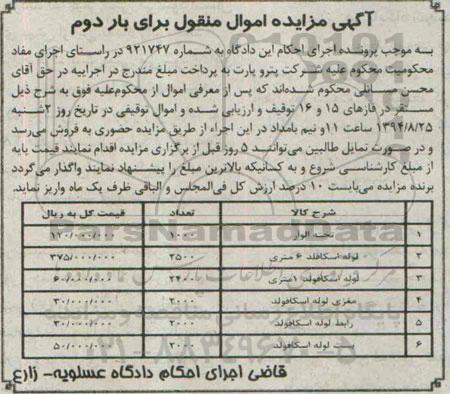 آگهی مزایده اموال منقول برای بار دوم
به موجب پرونده اجرای احکام این دادگاه به شماره ۹۲۱۷۴۷ در راستای اجرای مفاد
محکومیت محکوم علیه شرکت پترو پارت به پرداخت مبلغ مندرج در اجراییه در حق آقای
محسن مسائلی محکوم شده‌اند که پس از معرفی اموال از محکوم‌علیه فوق به شرح ذیل
مستقر در فازهای ۱۵ و ۱۶ توقیف و ارزیابی شده و اموال توقیفی در تاریخ روز ۲شنبه
۱۳۹۴/۸/۲۵ ساعت ۱۱و نیم بامداد در این اجراء از طریق مزایده حضوری به فروش می‌رسد
و در صورت تمایل طالبین می‌توانند ۵ روز قبل از برگزاری مزایده اقدام نمایند قیمت پایه
از مبلغ کارشناسی شروع و به کسانیکه بالاترین مبلغ را پیشنهاد نمایند واگذار می‌گردد
برنده مزایده می‌بایست ۱۰ درصد ارزش کل فی‌المجلس و الباقی ظرف یک ماه واریز نماید.
شرح کالا تعداد قیمت کل به ریال
۱ تخته الوار ۱۰۰۰ ۱۲۰/۰۰۰/۰۰۰
۲ لوله اسکافلد ۶ متری ۲۵۰۰ ۳۷۵/۰۰۰/۰۰۰
۳ لوله اسکافولد ۱متری ۲۴۰۰ ۶۰/۰۰۰/۰۰۰
۴ مغزی لوله اسکافولد ۲۰۰۰ ۳۰/۰۰۰/۰۰۰
۵ رابط لوله اسکافولد ۲۰۰۰ ۳۰/۰۰۰/۰۰۰
۶ بست لوله اسکافولد ۲۰۰۰ ۵۰/۰۰۰/۰۰۰
قاضی اجرای احکام دادگاه عسلویه- زارع
ParsNamadData